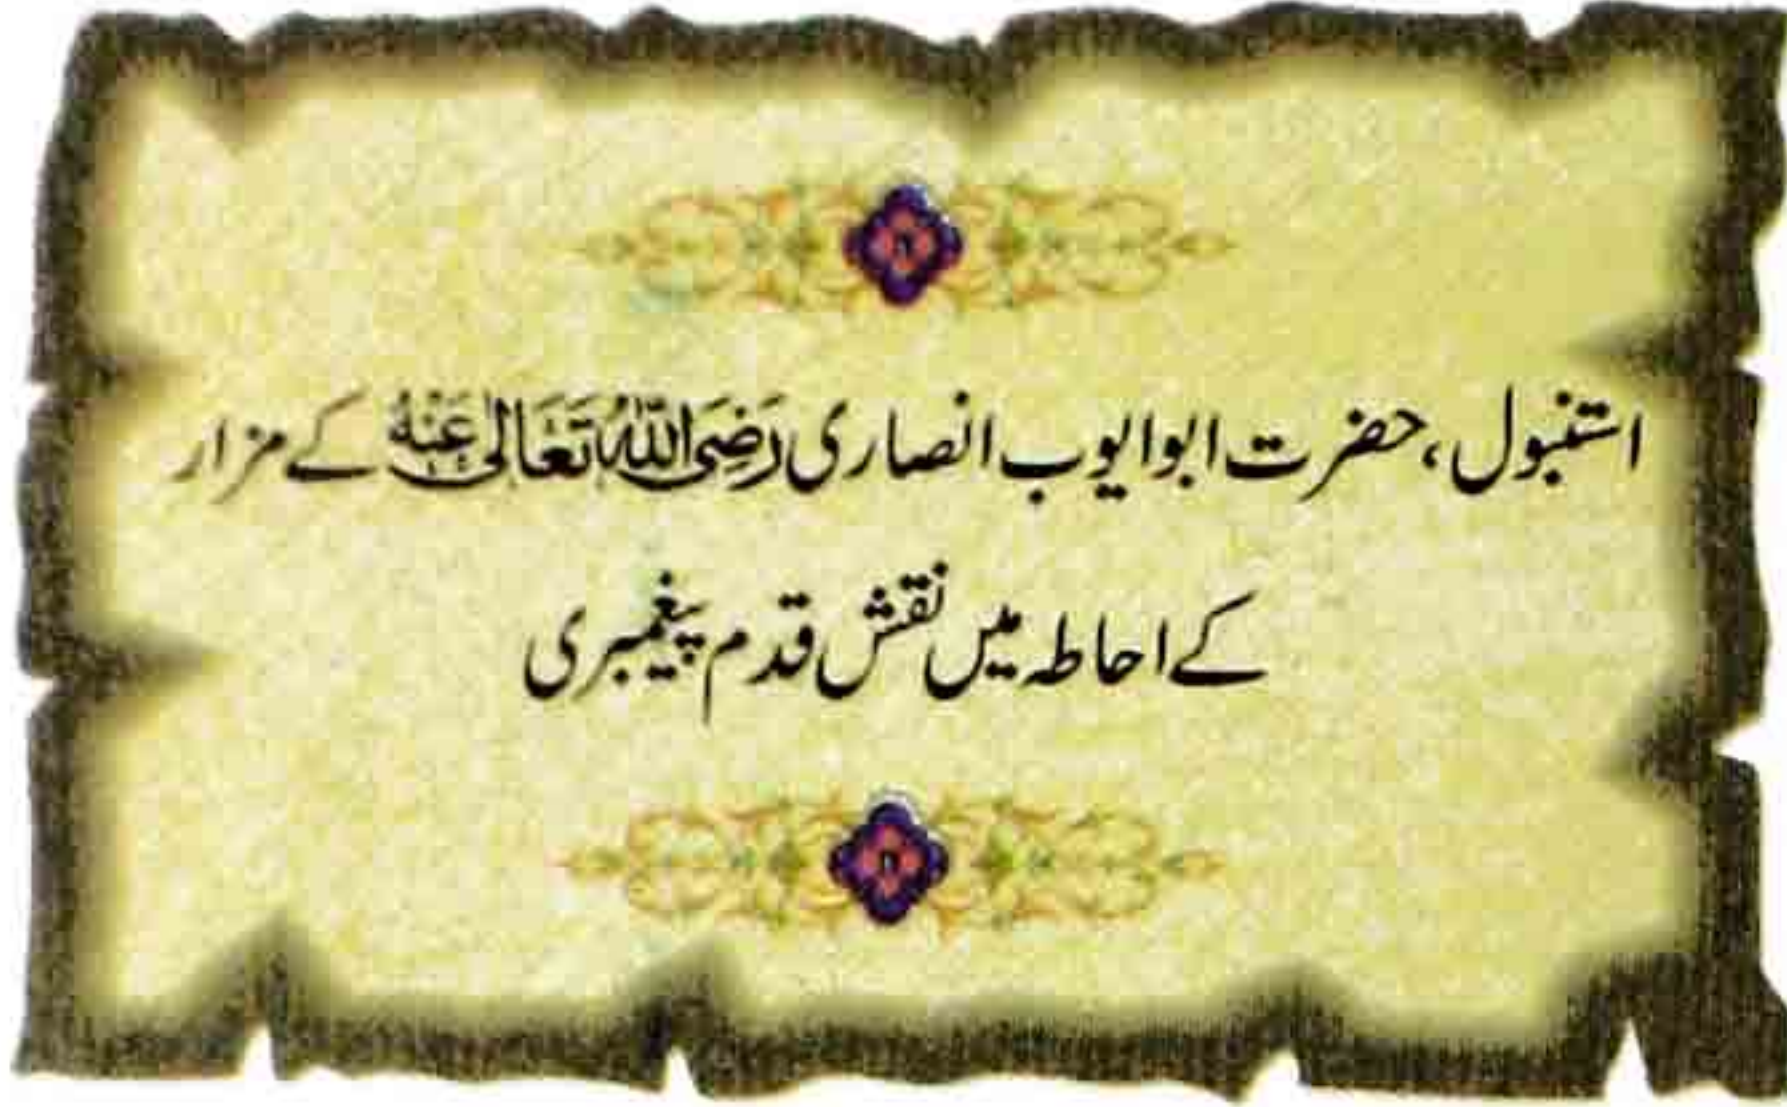 استنبول، حضرت ابوایوب انصاری رَضِیَ اللّٰهُ تَعَالٰی عَنْهُ کے مزار
کے احاطہ میں نقش قدم پیغمبری